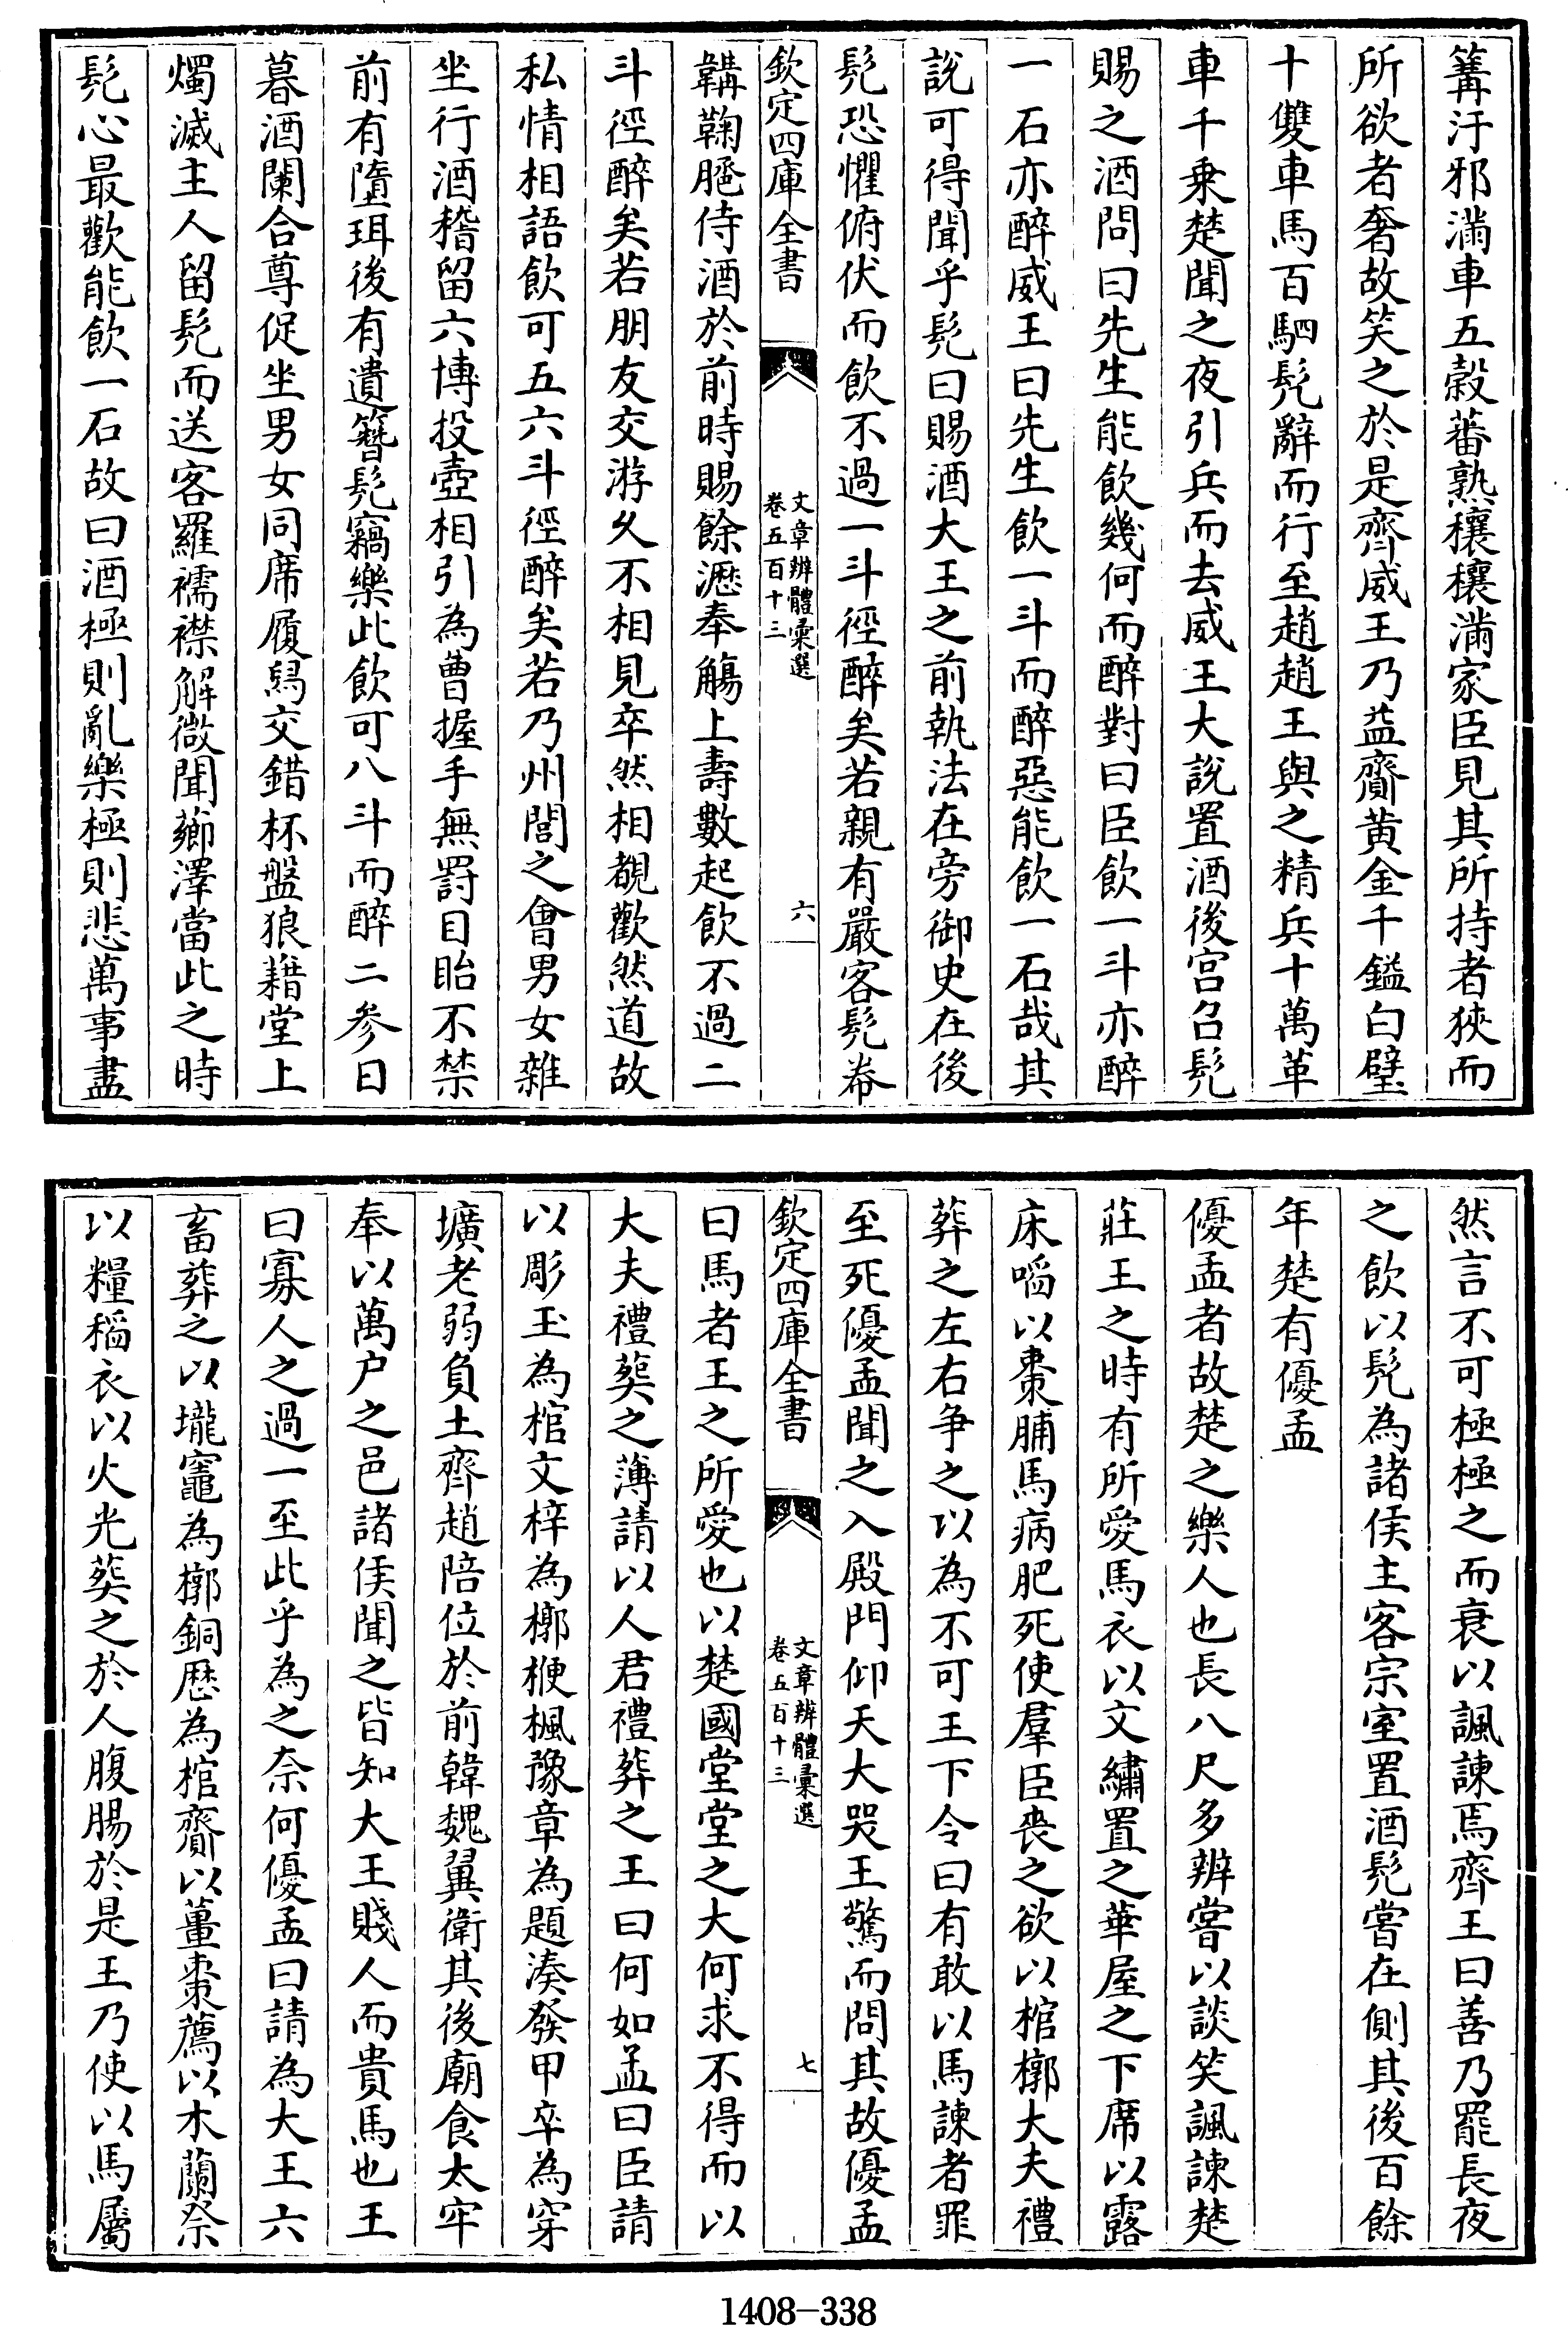 篝汙邪滿車五穀蕃熟穰穰滿家臣見其所持者狹而
所欲者奢故笑之於是齊威王乃益齎黄金千鎰白璧
十雙車馬百駟髠辭而行至趙趙王與之精兵十萬革
車千乗楚聞之夜引兵而去威王大說置酒後宫召髠
賜之酒問曰先生能飲幾何而醉對曰臣飲一斗亦醉
一石亦醉威王曰先生飲一斗而醉惡能飲一石哉其
說可得聞乎髠曰賜酒大王之前執法在旁御史在後
髠恐懼俯伏而飲不過一斗徑醉矣若親有嚴客髠帣
欽定四庫全書
文章辨體彚選
卷五百十三
六
韝鞠䠆侍酒於前時賜餘瀝奉觴上壽數起飲不過二
斗徑醉矣若朋友交游久不相見卒然相覩歡然道故
私情相語飲可五六斗徑醉矣若乃州閭之會男女雜
坐行酒稽留六博投壺相引為曹握手無罸目眙不禁
前有墮珥後有遺簪髠竊樂此飲可八斗而醉二参日
暮酒闌合尊促坐男女同席履舄交錯杯盤狼藉堂上
燭滅主人留髠而送客羅襦襟解微聞薌澤當此之時
髠心最歡能飲一石故曰酒極則亂樂極則悲萬事盡
然言不可極極之而衰以諷諫焉齊王曰善乃罷長夜
之飲以髠為諸侯主客宗室置酒髠嘗在側其後百餘
年楚有優孟
優孟者故楚之樂人也長八尺多辨嘗以談笑諷諫楚
莊王之時有所愛馬衣以文繡置之華屋之下席以露
床啗以棗脯馬病肥死使羣臣喪之欲以棺槨大夫禮
葬之左右争之以為不可王下令曰有敢以馬諫者罪
至死優孟聞之入殿門仰天大哭王驚而問其故優孟
欽定四庫全書
文章辨體彚選
卷五百十三
七
曰馬者王之所愛也以楚國堂堂之大何求不得而以
大夫禮葬之薄請以人君禮葬之王曰何如孟曰臣請
以彫玉為棺文梓為槨楩楓豫章為題湊發甲卒為穿
壙老弱負土齊趙陪位於前韓魏翼衛其後廟食太牢
奉以萬户之邑諸侯聞之皆知大王賤人而貴馬也王
曰寡人之過一至此乎為之奈何優孟曰請為大王六
畜葬之以壠竈為槨銅歴為棺齎以薑棗薦以木蘭祭
以糧稻衣以火光葬之於人腹腸於是王乃使以馬屬
1408-338